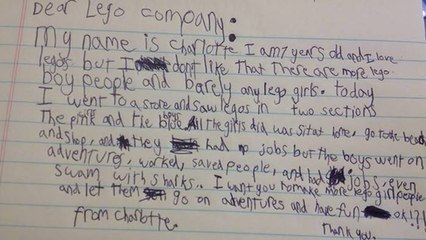 Dear Lego company:
My name is Charlotte I am 7 years old and I love
legos but I dont like that There are more lego
boy people and barely any lego girls. today
I went to a store and saw legos in two sections
The pink and the blue. All the girls did was sit at home, go to the beach
and shop, and they had no jobs but the boys went on
adventures, worked, saved people, and had jobs, even
swam with sharks. I want you to make more lego girl people
and let them go on adventures and have fun ok!?!
Thank you.
from Charlotte.